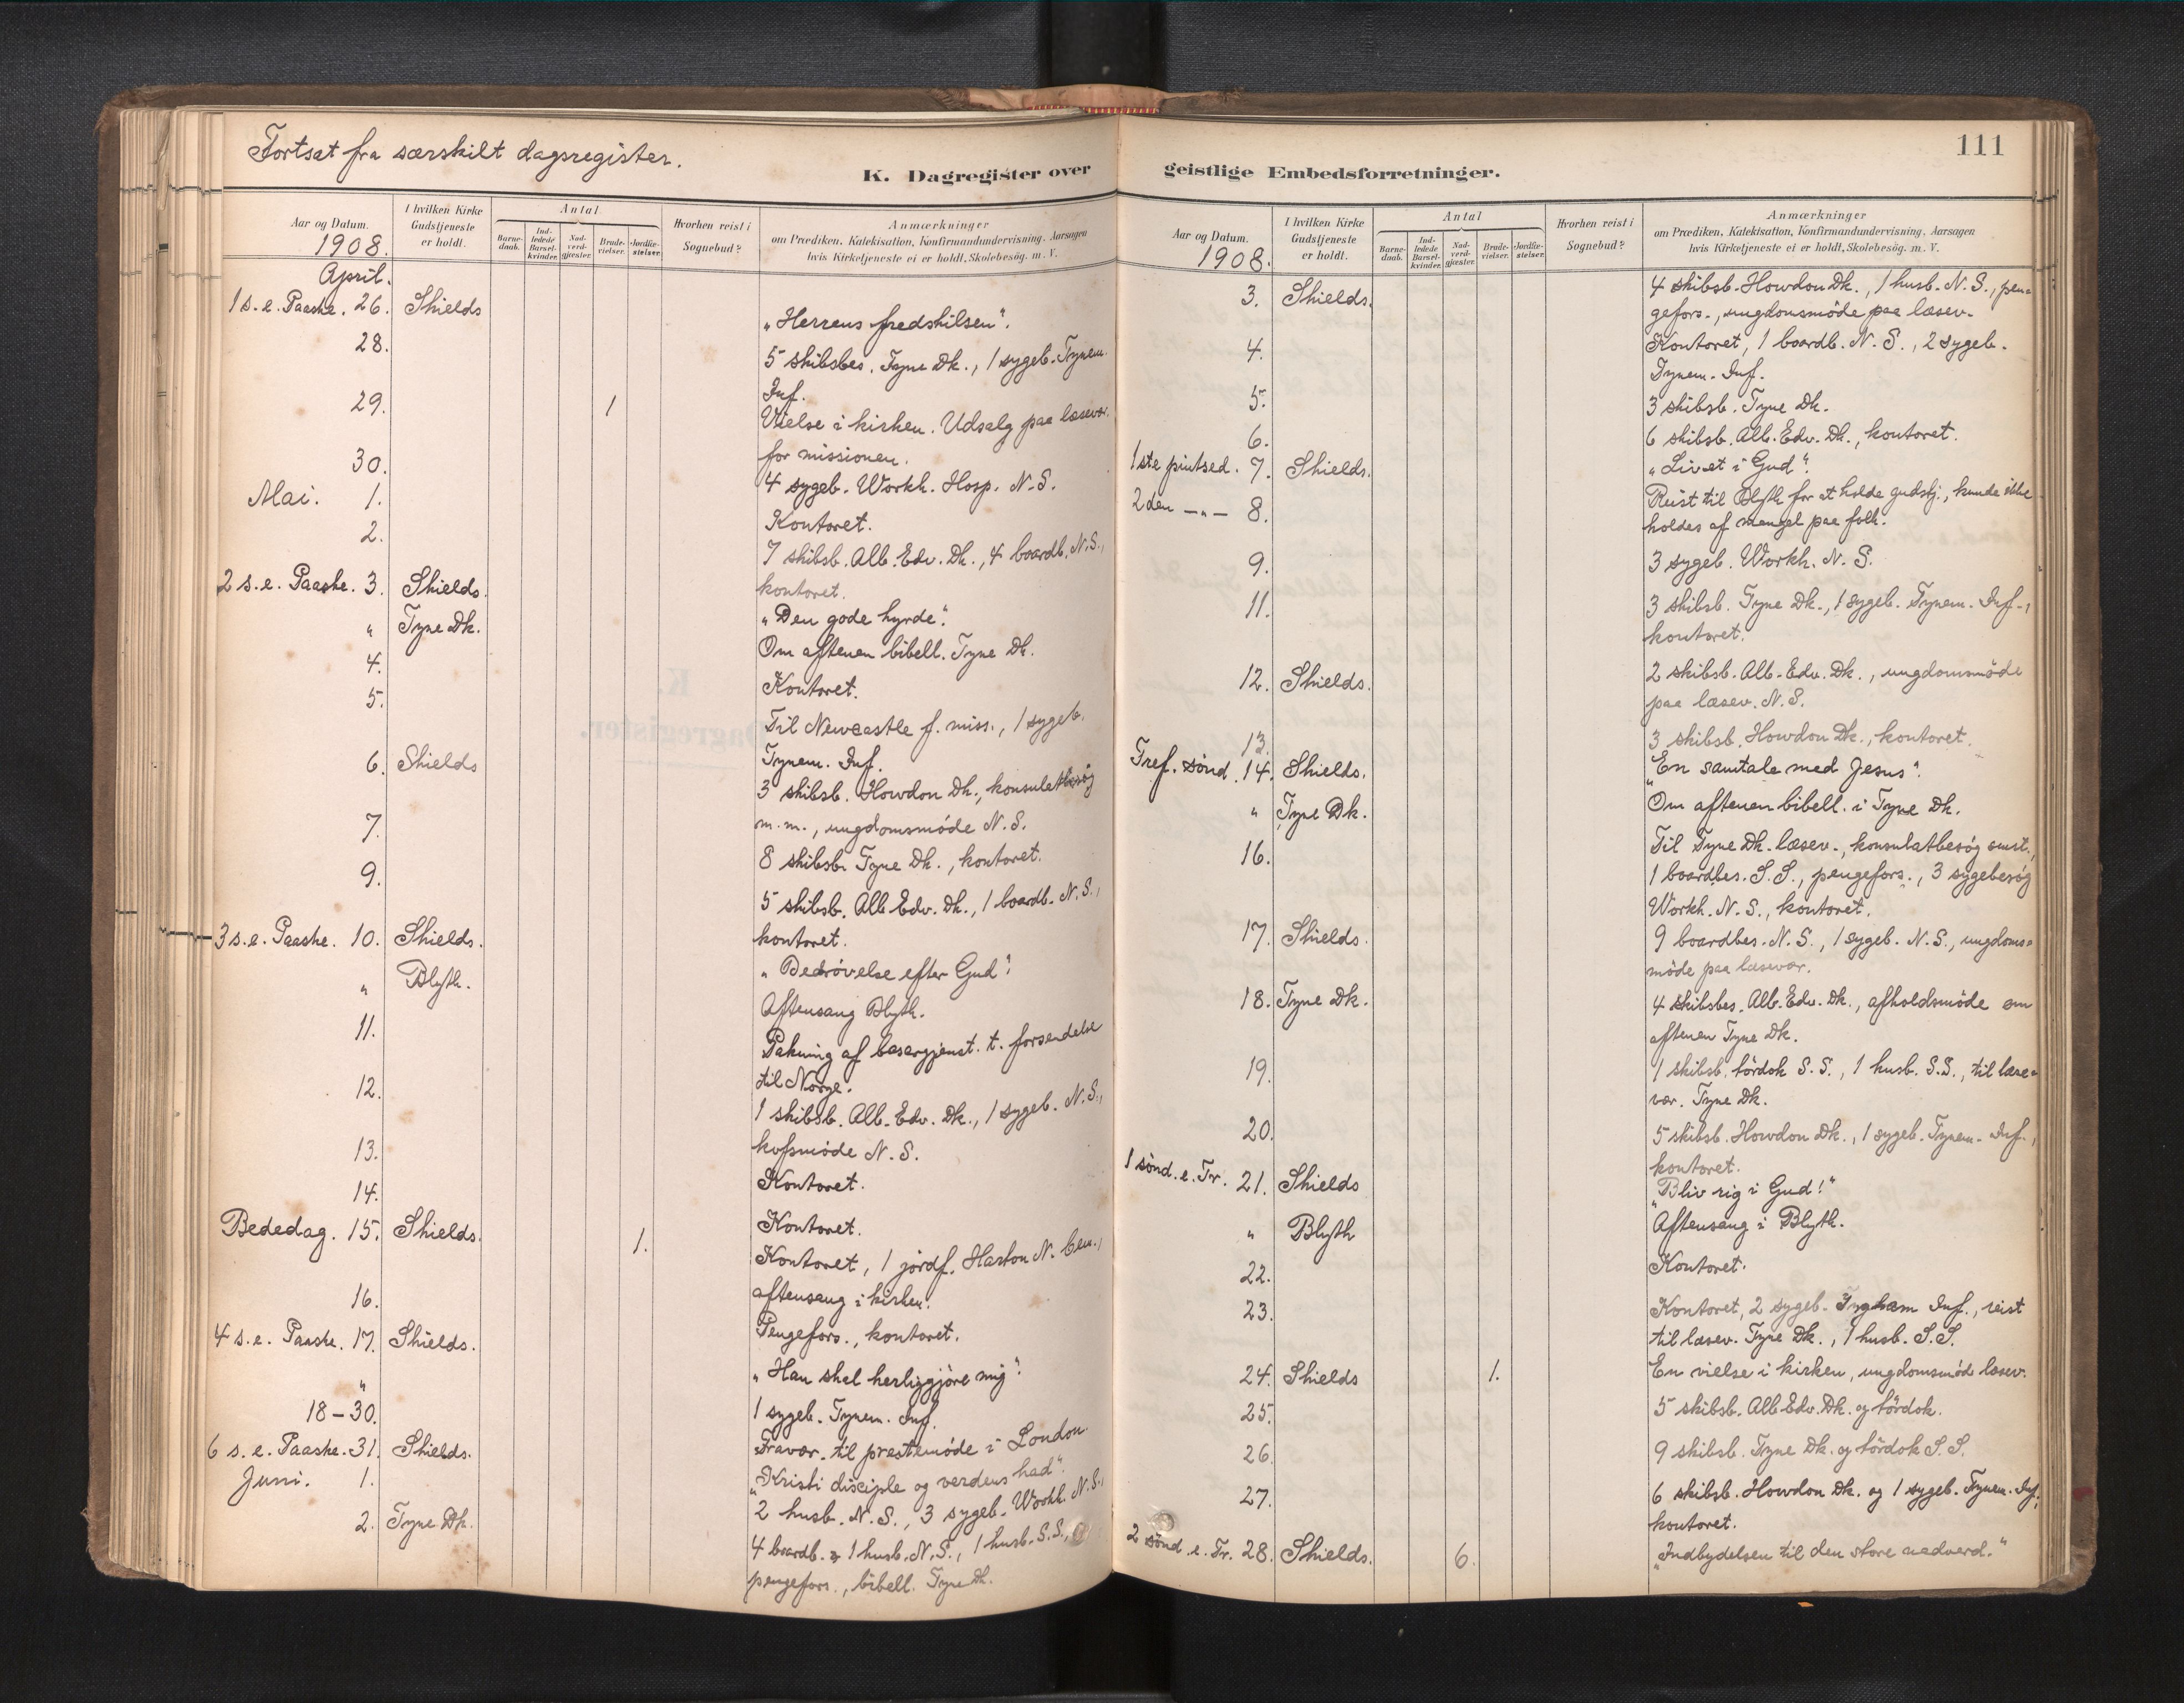 Fortsat fra særskilt dagsregister.
K. Dagregister over
Aar og Datum.
1908.
I hvilken Kirke Gudstjeneste er holdt.
Antal
Barne-daab.
Ind-ledede Barsel-kvinder.
Nad-verd-gjæster.
Brude-vielser.
Jordfæ-stelser.
Hvorhen reist i Sognebud?
Anmærkninger
om Prædiken, Katekisation, Konfirmandundervisning, Aarsagen
hvis Kirketjeneste ei er holdt, Skolebesøg. m. V.
April.
1 s. e. Paaske. 26. Shields "Herrens fredshilsen".
28. 5 skibsbes. Tyne Dk., 1 sygeb. Tynem.
Inf.
29. 1 Vielse i kirken. Udsalg paa læsevær.
for missionen.
30. 4 sygeb. Workh. Hosp. N.S.
Mai. 1. Kontoret.
2. 7 skibsb. Alb. Edv. Dk., 4 boardb. N.S.,
kontoret.
2 s. e. Paaske. 3. Shields. "Den gode hyrde".
" Tyne Dk. Om aftenen bibell. Tyne Dk.
4. Kontoret.
5. Til Newcastle f. miss., 1 sygeb.
Tynem. Inf.
6. Shields 3 skibsb. Howdon Dk., konsulatbesøg
m.m., ungdomsmöde N.S.
7. 8 skibsb. Tyne Dk., kontoret.
9. 5 skibsb. Alb. Edv. Dk., 1 boardb. N.S.,
kontoret.
3 s. e. Paaske. 10. Shields. "Bedrövelse efter Gud".
" Blyth. Aftensang Blyth.
11. Pakning af basargjenst. t. forsendelse
til Norge.
12. 1 skibsb. Alb. Edv. Dk., 1 sygeb. N.S.,
möde N.S.
13. Kontoret.
14. Kontoret.
Bededag. 15. Shields. 1. Kontoret, 1 jordf. Harton N. Cem.,
aftensang i kirken.
16. Pengefors., kontoret.
4 s. e. Paaske. 17. Shields. "Han skal herliggjöre mig".
" 1 sygeb. Tynem. Inf.
18–30. Fravær. til prestemöde i London.
6 s. e. Paaske. 31. Shields. "Kristi disciple og verdens had".
Juni. 1. 2 husb. N.S., 3 sygeb. Workh. N.S.,
2. Tyne Dk. 4 boardb. og 1 husb. N.S., 1 husb. S.S.,
pengefors., bibell. Tyne Dk.
111
geistlige Embedsforretninger.
Aar og Datum.
1908.
I hvilken Kirke Gudstjeneste er holdt.
Antal
Barne-daab.
Ind-ledede Barsel-kvinder.
Nad-verd-gjæster.
Brude-vielser.
Jordfæ-stelser.
Hvorhen reist i Sognebud?
Anmærkninger
om Prædiken, Katekisation, Konfirmandundervisning, Aarsagen
hvis Kirketjeneste ei er holdt, Skolebesög. m. V.
3. Shields. 4 skibsb. Howdon Dk., 1 husb. N.S., pen-
gefors., ungdomsmöde paa læsev.
4. Kontoret, 1 boardb. N.S., 2 sygeb.
Tynem. Inf.
5. 3 skibsb. Tyne Dk.
6. 6 skibsb. Alb. Edv. Dk., kontoret.
1ste pintsed. 7. Shields. "Livet i Gud".
2den —"— 8. Reist til Blyth for at holde gudstj., kunde ikke
holdes af mangel paa folk.
9. 3 sygeb. Workh. N.S.
11. 3 skibsb. Tyne Dk., 1 sygeb. Tynem. Inf.,
kontoret.
12. Shields. 2 skibsb. Alb. Edv. Dk., ungdomsmöde
paa læsev. N.S.
13. 3 skibsb. Howdon Dk., kontoret.
Tref. sönd. 14. Shields. "En samtale med Jesus".
" Tyne Dk. Om aftenen bibell. i Tyne Dk.
16. Til Tyne Dk. læsev., konsulatbesög smst.,
1 boardbes. S.S., pengefors., 3 sygebesög
Workh. N.S., kontoret.
17. Shields. 9 boardbes. N.S., 1 sygeb. N.S., ungdoms-
möde paa læsevær.
18. Tyne Dk. 4 skibsbes. Alb. Edv. Dk., afholdsmöde om
aftenen Tyne Dk.
19. 1 skibsb. tördok S.S., 1 husb. S.S., til læse-
vær. Tyne Dk.
20. 5 skibsb. Howdon Dk., 1 sygeb. Tynem. Inf.,
kontoret.
1 sönd. e. Tr. 21. Shields "Bliv rig i Gud!"
" Blyth Aftensang i Blyth.
22. Kontoret.
23. Kontoret, 2 sygeb. Ingham Inf., reist
til læsev. Tyne Dk., 1 husb. S.S.
24. Shields 1. En vielse i kirken, ungdomsmöde læsev.
25. 5 skibsb. Alb. Edv. Dk. og tördok.
26. 9 skibsb. Tyne Dk. og tördok S.S.
27. 6 skibsb. Howdon Dk. og 1 sygeb. Tynem. Inf.,
kontoret.
2 sönd. e. Tr. 28. Shields. 6. "Indbydelsen til den store nadverd."